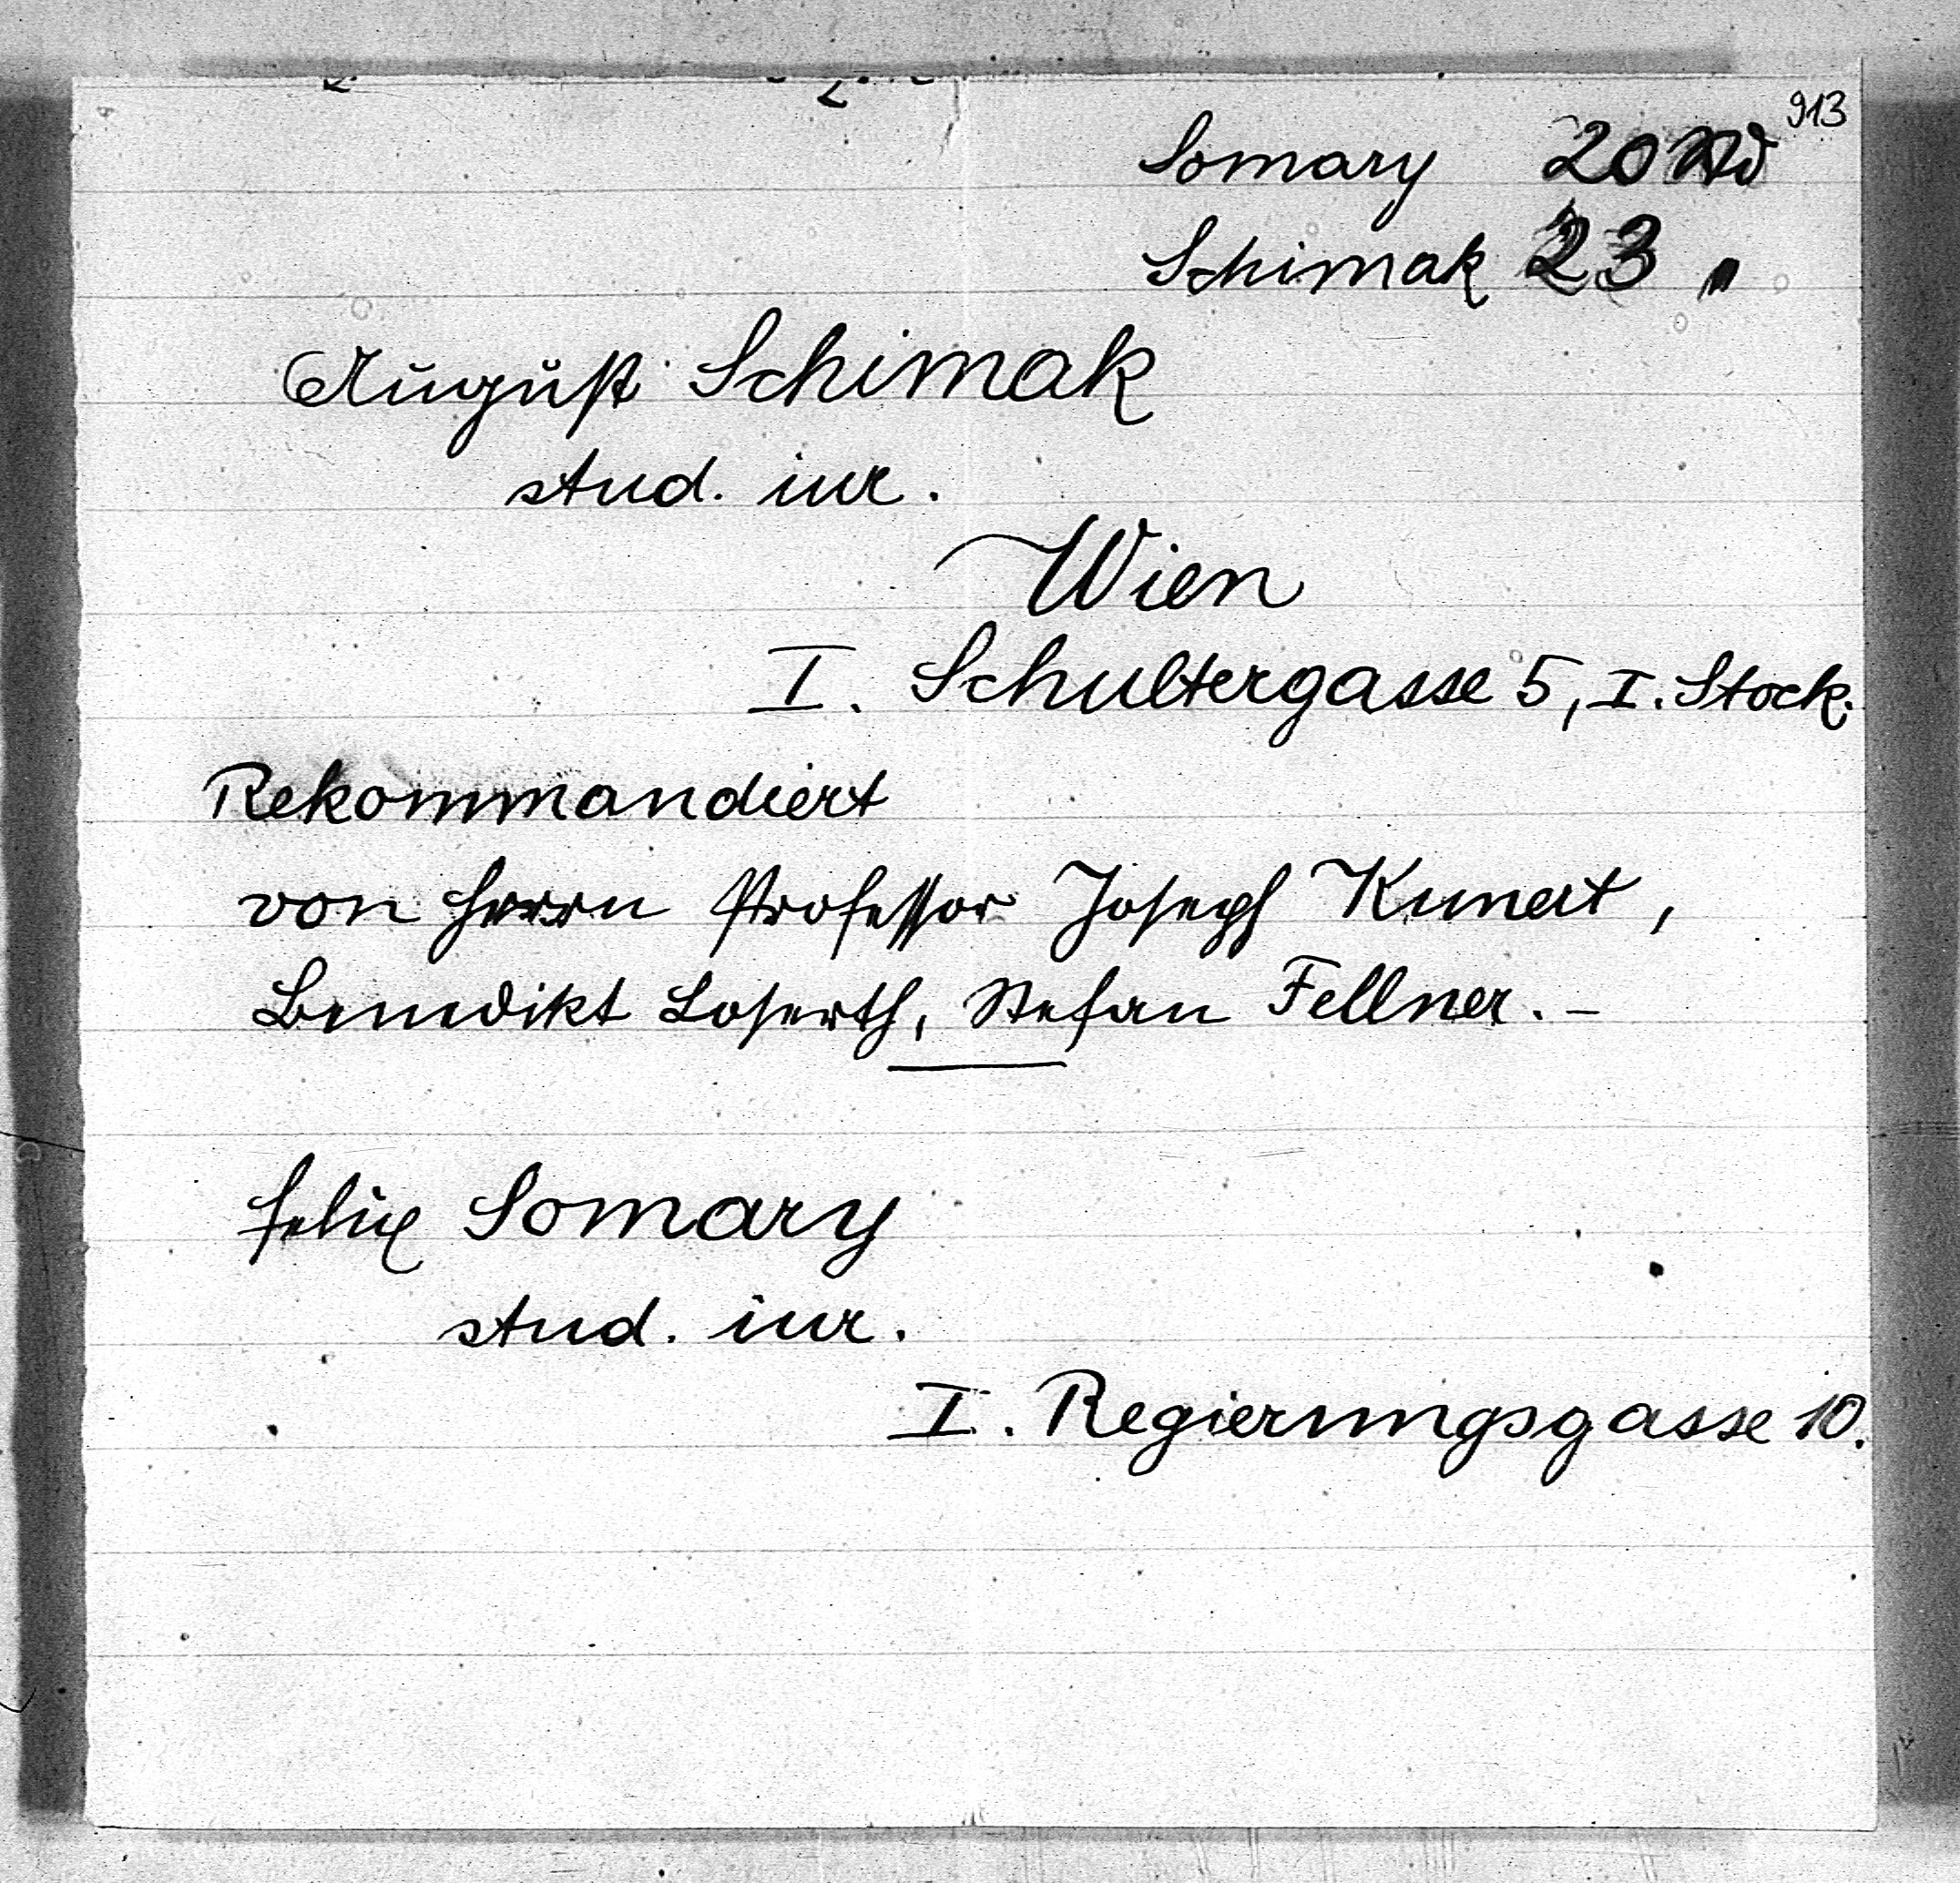 913
Somary 20
Schimak 23 "
August Schimak
stud. iur.
Wien
I. Schultergasse 5, I. Stock.
Rekommandiert
von Herrn Professor Joseph Kunert,
Benedikt Loserth, Stefan Fellner. –
Felix Somary
stud. iur.
I. Regierungsgasse 10.